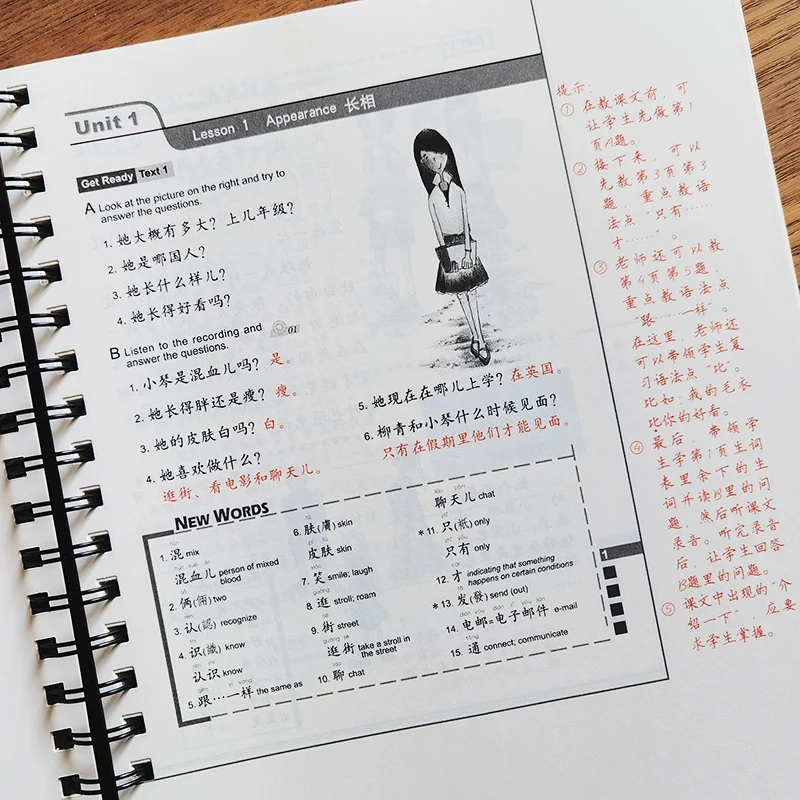 Unit 1
Lesson 1 Appearance 长相
Get Ready Text 1
A Look at the picture on the right and try to
answer the questions.
1. 她大概有多大？上几年级？
2. 她是哪国人？
3. 她长什么样儿？
4. 她长得好看吗？
B Listen to the recording and 01
answer the questions.
1. 小琴是混血儿吗？ 是。
2. 她长得胖还是瘦？ 瘦。
3. 她的皮肤白吗？ 白。
4. 她喜欢做什么？
逛街、看电影和聊天儿。
5. 她现在在哪儿上学？ 在英国。
6. 柳青和小琴什么时候见面？
只有在假期里他们才能见面。
NEW WORDS
hùn
1. 混 mix
hùn xuè ér
混血儿 person of mixed
blood
liǎ
2. 俩(倆) two
rèn
3. 认(認) recognize
shí
4. 识(識) know
rèn shi
认识 know
gēn yí yàng
5. 跟…一样 the same as
fū
6. 肤(膚) skin
pí fū
皮肤 skin
xiào
7. 笑 smile; laugh
guàng
8. 逛 stroll; roam
jiē
9. 街 street
guàng jiē
逛街 take a stroll in
the street
liáo
10. 聊 chat
liáo tiānr
聊天儿 chat
zhǐ
*11. 只(祇) only
zhǐ yǒu
只有 only
cái
12. 才 indicating that something
happens on certain conditions
fā
*13. 发(發) send (out)
diàn yóu diàn zǐ yóu jiàn
14. 电邮=电子邮件 e-mail
tōng
15. 通 connect; communicate
1
提示：
① 在教课文前，可
让学生先做第1
页A题。
② 接下来，可以
先教第3页第3
题，重点教语
法点“只有……
才……”。
③ 老师还可以教
第4页第5题，
重点教语法点
“跟……一样”。
在这里，老师还
可以带领学生复
习语法点“比”。
比如：我的毛衣
比你的好看。
④ 最后，带领学
生学第1页生词
表里余下的生
词并读B里的问
题，然后听课文
录音。听完录音
后，让学生回答
B题里的问题。
⑤ 课文中出现的“介
绍一下”，应要
求学生掌握。